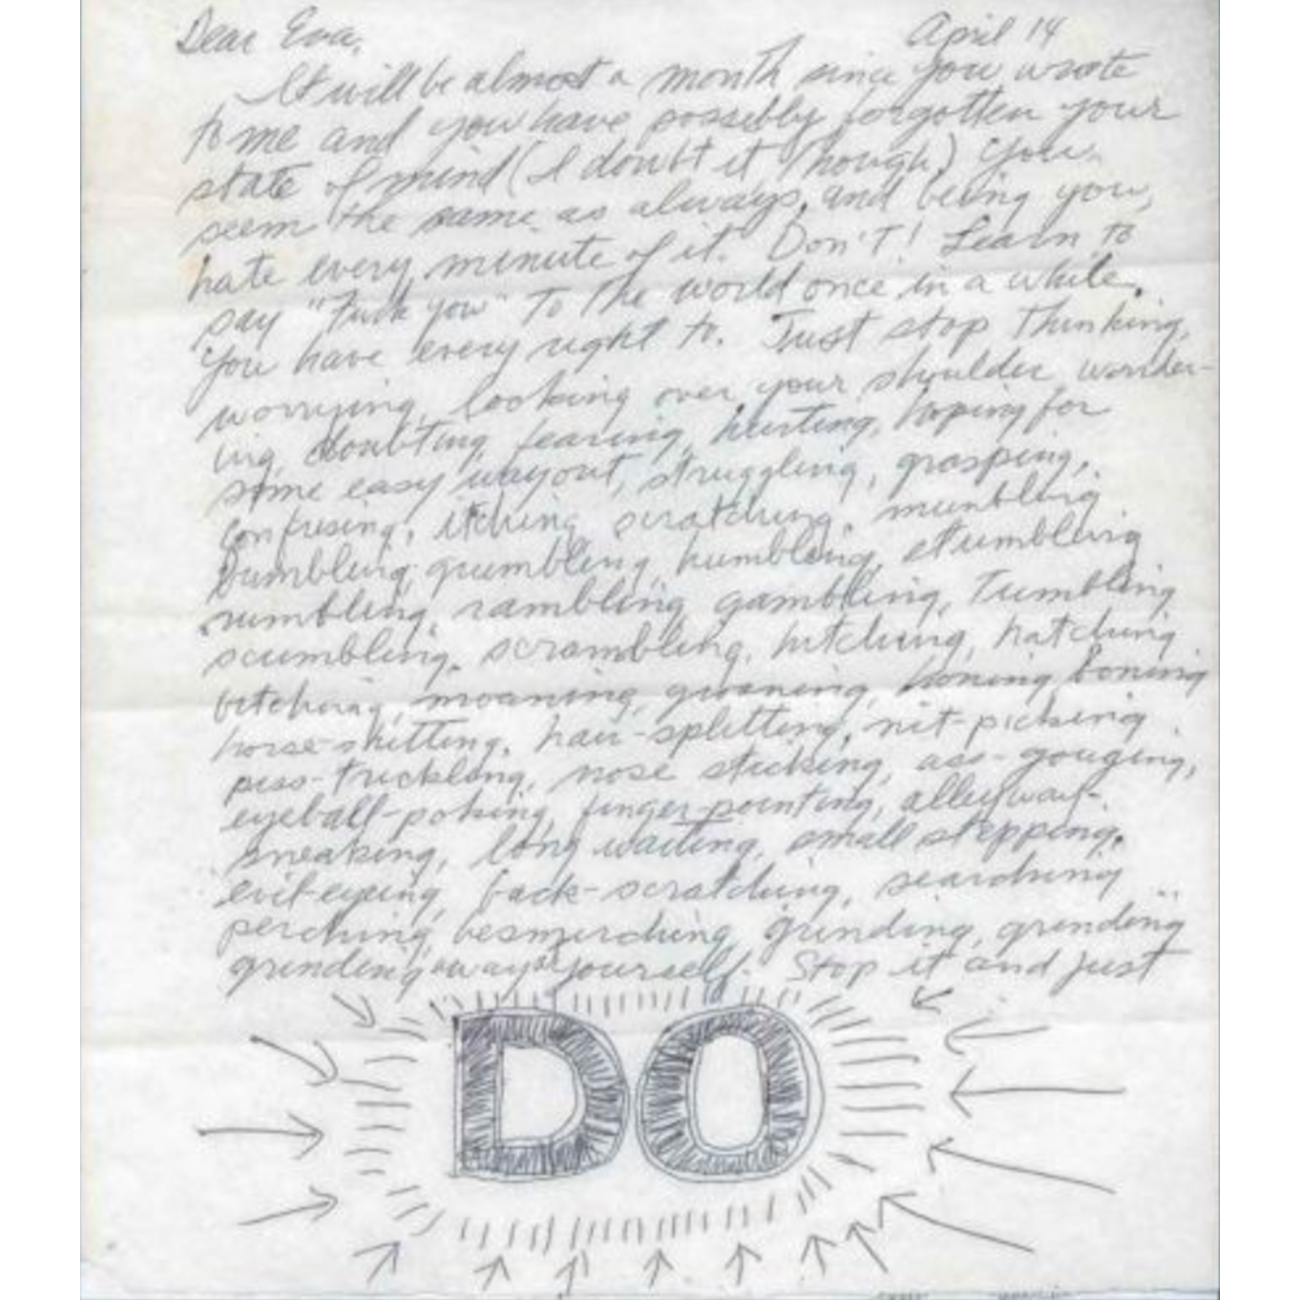 Dear Eva, April 14
It will be almost a month since you wrote
to me and you have possibly forgotten your
state of mind (I doubt it though). You
seem the same as always, and being you,
hate every minute of it. Don't! Learn to
say "Fuck you" to the world once in a while.
You have every right to. Just stop thinking,
worrying, looking over your shoulder wonder-
ing, doubting, fearing, hurting, hoping for
some easy way out, struggling, grasping,
confusing, itching, scratching, mumbling
bumbling, grumbling, humbling, stumbling
rumbling, rambling gambling, tumbling
scumbling, scrambling, hitching, hatching
bitching, moaning, groaning, honing boning
horse-shitting, hair-splitting, nit-picking
piss-trickling, nose sticking, ass-gouging,
eyeball-poking, finger-pointing, alleyway-
sneaking, long waiting, small stepping,
evil-eyeing, back-scratching, searching
perching, besmirching, grinding, grinding
grinding away at yourself. Stop it and just
DO